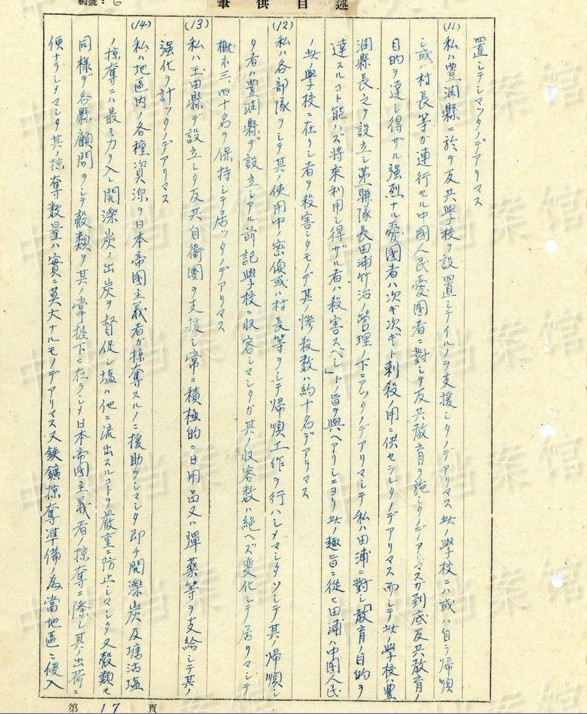 述自供筆
置シテシマッタノデアリマス
(11)私ハ豊潤縣ニ於テ反共學校ヲ設置シテイルノヲ支援シタノデアリマス 此ノ學校ニハ或ハ自ラ帰順
シ或ハ村長等ガ連行セル中國人民愛國者ニ對シテ反共敎育ヲ施シタノデアリマスガ到底反共敎育ノ
目的ヲ達シ得ザル強烈ナル愛國者ハ次ギ次ギト刺殺ノ用ニ供セラレタノデアリマス 而シテ此ノ學校ハ豊
潤縣長之ヲ設立シ第 聯隊長田浦竹治ノ管理ノ下ニアッタノデアリマシテ私ハ田浦ニ對シ「敎育ノ目的ヲ
達スルコト能ハズ将來利用シ得ザル者ハ殺害スベシ」トノ旨ヲ與ヘアリシニヨリ此ノ趣旨ニ從ヒ田浦ハ中國人民
ノ此ノ學校ニ在リシ者ヲ殺害シタモノデ其ノ惨殺数ハ約十名デアリマス
(12)私ハ各部隊ヲシテ其ノ使用中ノ密偵或ハ村長等ヲシテ帰順工作ヲ行ハシメマシタ ソシテ其ノ帰順シ
タ者ハ豊潤縣デ設立シタル前記學校ニ收容シマシタガ其ノ收容数ハ絶ヘズ変化シテ居リマシテ
概ネ三、四十名ヲ保持シテ居ッタノデアリマス
(13)私ハ玉田縣デ設立シタ反共自衛團ヲ支援シ常ニ積極的ニ日用品又ハ弾薬等ヲ支給シテ其ノ
強化ヲ計ッタノデアリマス
(14)私ハ地區内ノ各種資源ヲ日本帝國主義者ガ掠奪スルノニ援助シマシタ 即チ開灤炭及塘沽塩
ノ掠奪ニハ最モ力ヲ入レ開灤炭ノ出炭ヲ督促シ塩ハ他ニ流出スルコトヲ嚴重ニ防止シマシタ 又穀類モ
同様デ各縣顧問ヲシテ穀類ヲ其ノ掌握下ニ在ラシメ日本帝國主義者ノ掠奪ニ際シ其ノ出荷ニ
便ナラシメマシタ 其ノ掠奪数量ハ實ニ莫大ナルモノデアリマス 又鉄鑛掠奪準備ノ為當地區ニ侵入
第 17 頁